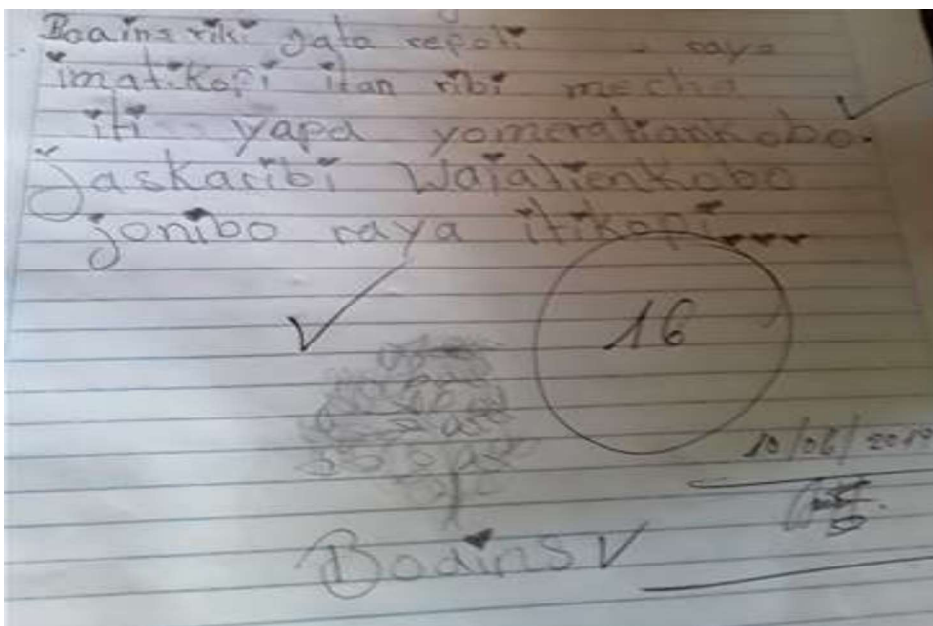 Boains riki jata repoti - raya
imatikopi itan ribi mecha
iti yapa yomeratiankobo.
jaskaribi Waiatienkobo
jonibo raya itikopi
16
10/06/2019
BoainS